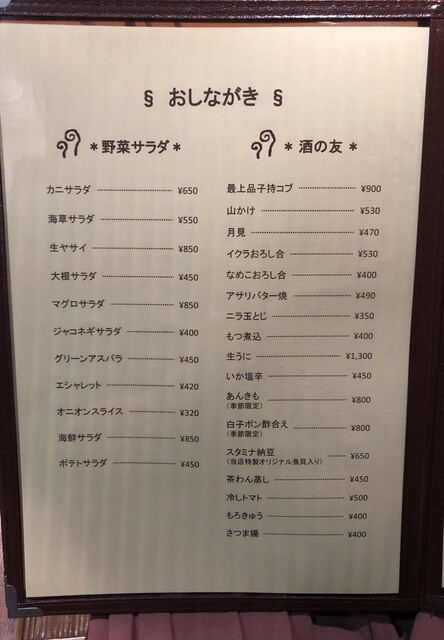 § おしながき §
＊野菜サラダ＊
カニサラダ ¥650
海草サラダ ¥550
生ヤサイ ¥850
大根サラダ ¥450
マグロサラダ ¥850
ジャコネギサラダ ¥400
グリーンアスパラ ¥450
エシャレット ¥420
オニオンスライス ¥320
海鮮サラダ ¥850
ポテトサラダ ¥450
＊酒の友＊
最上品子持コブ ¥900
山かけ ¥530
月見 ¥470
イクラおろし合 ¥530
なめこおろし合 ¥400
アサリバター焼 ¥490
ニラ玉とじ ¥350
もつ煮込 ¥400
生うに ¥1,300
いか塩辛 ¥450
あんきも ¥800
（季節限定）
白子ポン酢合え ¥800
（季節限定）
スタミナ納豆 ¥650
（当店特製オリジナル魚貝入り）
茶わん蒸し ¥450
冷しトマト ¥500
もろきゅう ¥400
さつま揚 ¥400